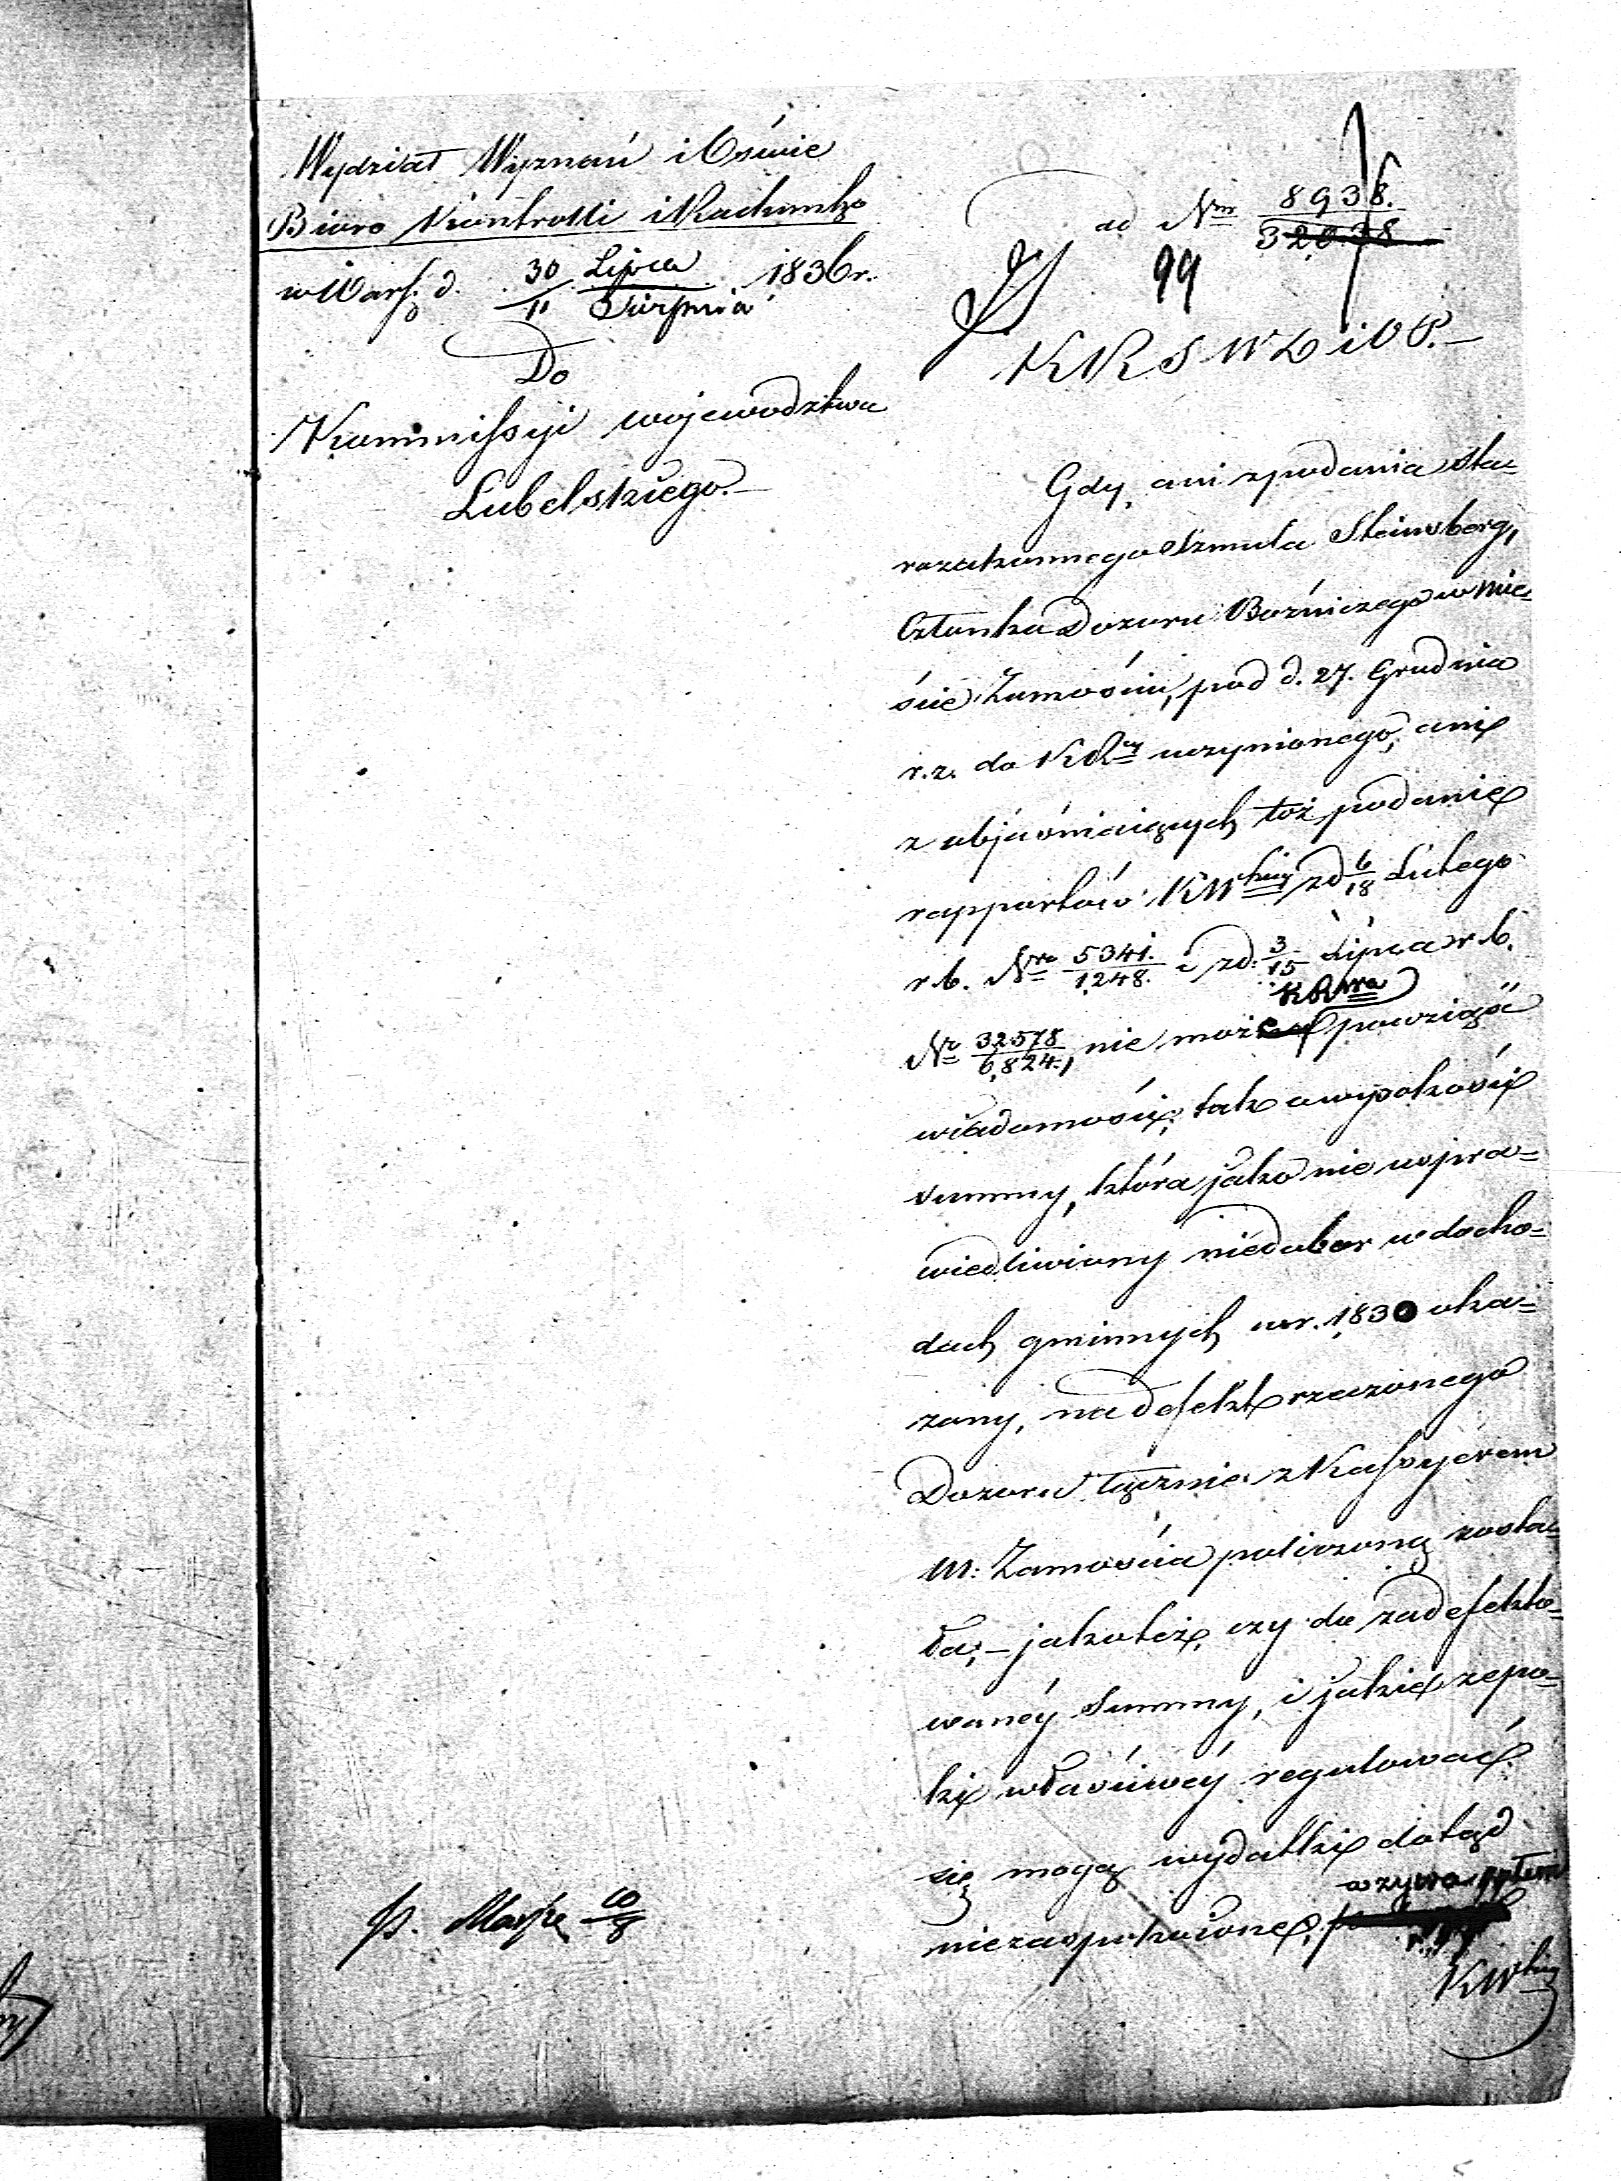 Wydział Wyznań i Oświe
Biuro Kontrolli i Rachunko
w Wars. d. 30/11 Lipca/Sierpnia 1836 r.
Do
Kommissyi województwa
Lubelskiego.
ad Nru 8938.
32038
99
KRSWDiOP.
Gdy, ani z podania sta-
rozakonnego Szmula Steinsberg,
Członka Dozoru Bożniczego w Mie-
ście Zamościu, pod d. 27. Grudnia
r. z. do KR uczynionego, ani
z objaśniaiących toż podanie
rapportów KW z d 6/18 Lutego
r b. Nro 5341./1248. i z d. 3/15 Lipca r b.
Nr 32578/6824., nie może KR powziąść
wiadomości, tak o wysokości
summy, która jako nie uspra-
wiedliwiony niedobor w docho-
dach gminnych w r. 1830 oka-
zany, na defekt rzeczonego
Dozoru łącznie z Kassyerem
M: Zamościa policzoną zosta-
ła; - jako też, czy do zadefekto-
wanéy Summy, i jakie z epo-
ki właściwéy regulować
się mogą wydatki dotąd
niezaspokoione, wzywa przeto
KW